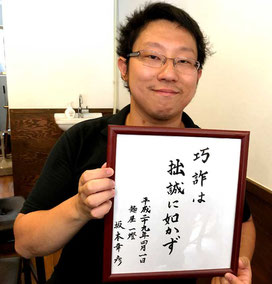 巧詐は
拙誠に如かず
平成二十九年四月一日
麺屋一燈
坂本幸彦